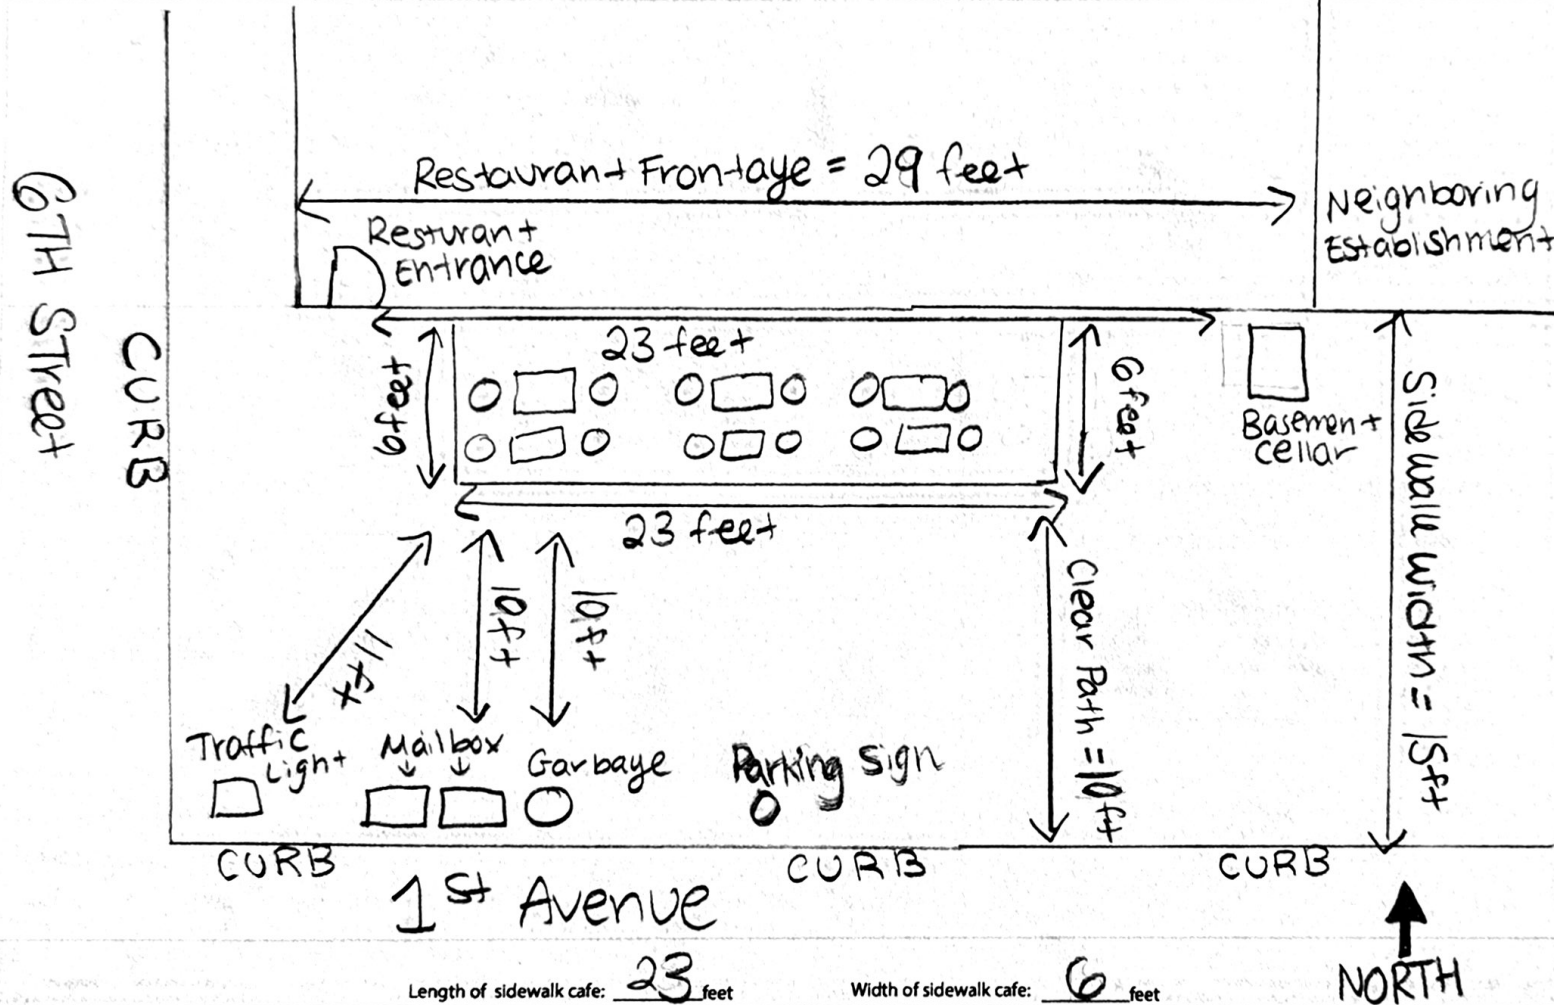 Restaurant Frontaye = 29 feet
Neignboring
Establishment
Resturant
Entrance
6TH Street
CURB
23 feet
6 feet
6 feet
Basement
cellar
Sidewalk Width = 15ft
23 feet
11 ft
10ft
10ft
Clear Path = 10ft
Traffic
Light
Mailbox
Garbaye
Parking Sign
CURB
CURB
CURB
1st Avenue
NORTH
Length of sidewalk cafe: 23 feet
Width of sidewalk cafe: 6 feet